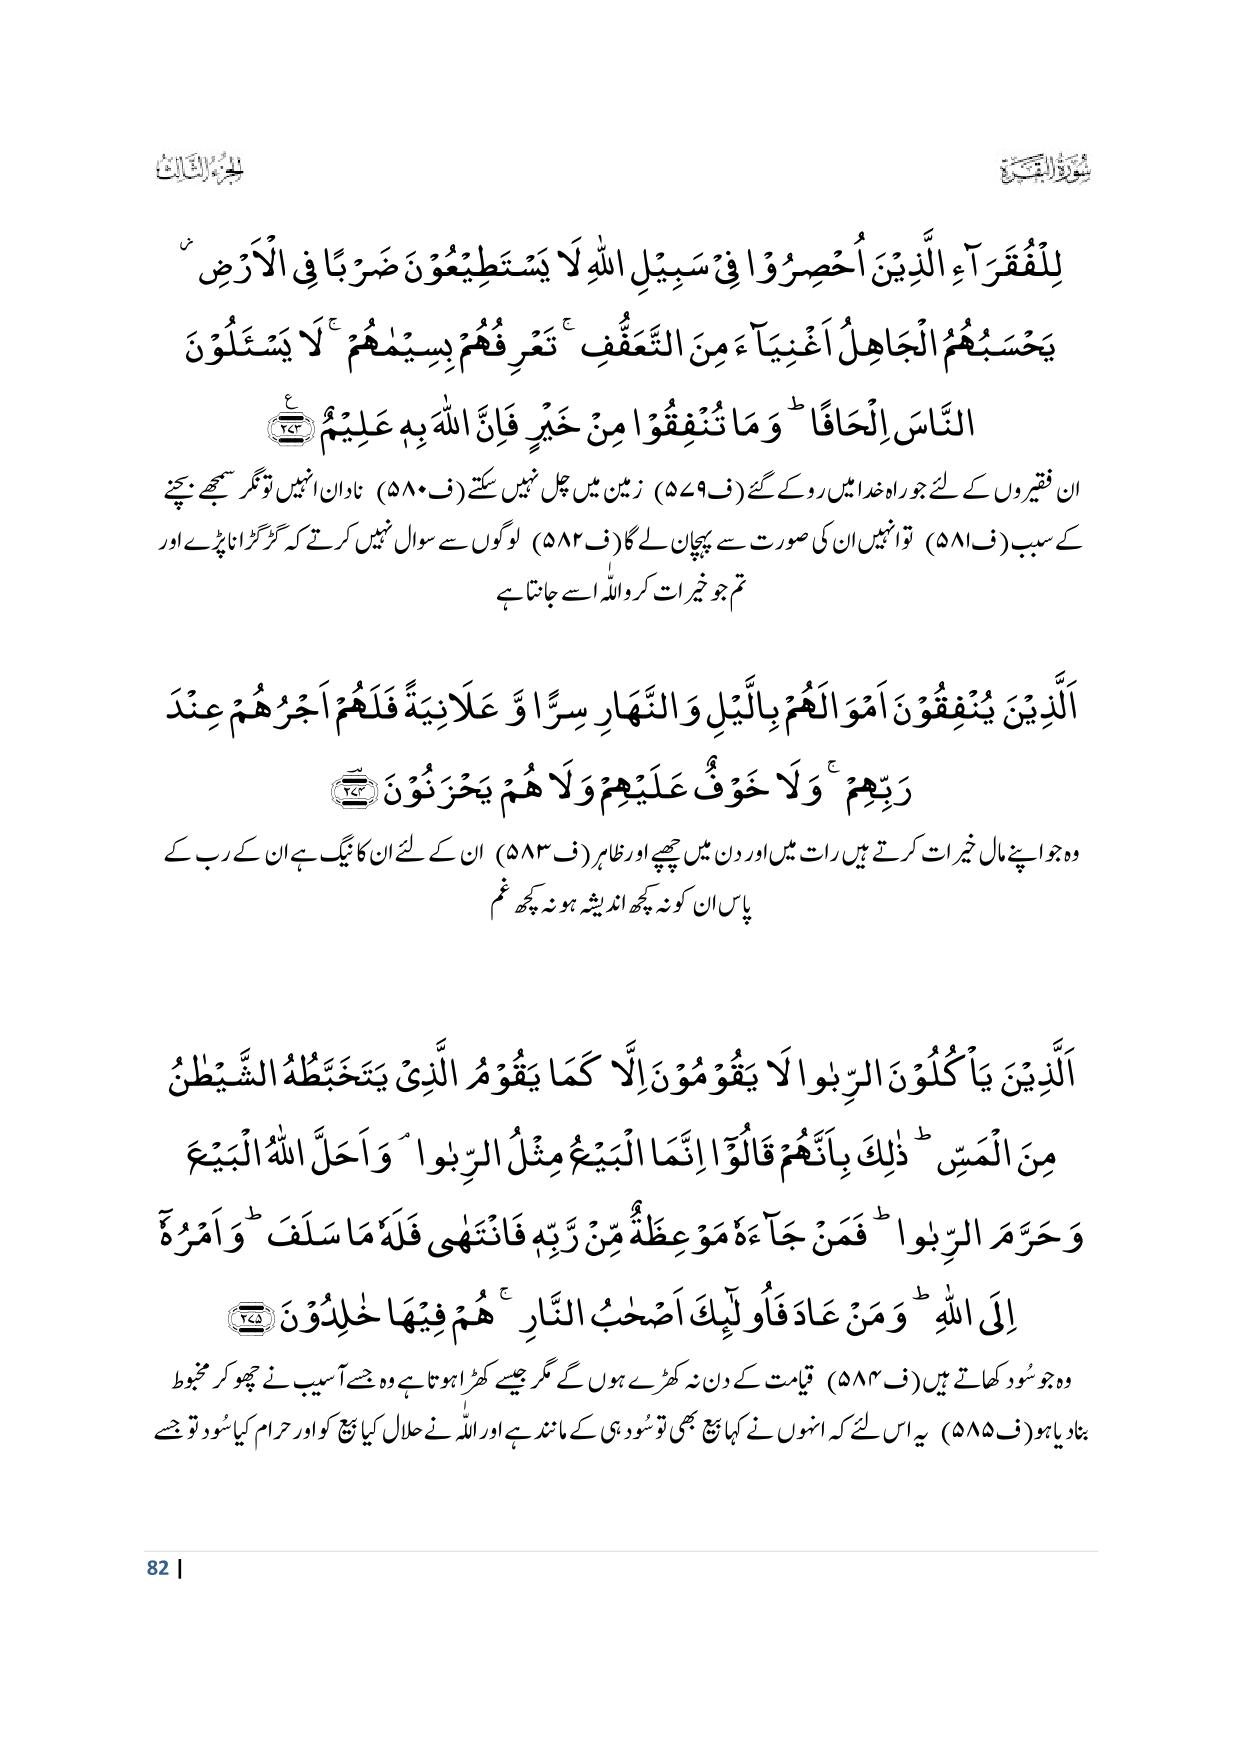 سُوْرَةُ الْبَقَرَة
الجزء الثالث
لِلْفُقَرَآءِ الَّذِيْنَ اُحْصِرُوْا فِيْ سَبِيْلِ اللّٰهِ لَا يَسْتَطِيْعُوْنَ ضَرْبًا فِى الْاَرْضِ ۫
يَحْسَبُهُمُ الْجَاهِلُ اَغْنِيَآءَ مِنَ التَّعَفُّفِ ۚ تَعْرِفُهُمْ بِسِيْمٰهُمْ ۚ لَا يَسْـَٔلُوْنَ
النَّاسَ اِلْحَافًا ؕ وَمَا تُنْفِقُوْا مِنْ خَيْرٍ فَاِنَّ اللّٰهَ بِهٖ عَلِيْمٌ ﴿۲۷۳﴾ ع
ان فقیروں کے لئے جو راہ خدا میں روکے گئے (ف۵۷۹) زمین میں چل نہیں سکتے (ف۵۸۰) نادان انہیں تونگر سمجھے بچنے
کے سبب (ف۵۸۱) تو انہیں ان کی صورت سے پہچان لے گا (ف۵۸۲) لوگوں سے سوال نہیں کرتے کہ گڑگڑانا پڑے اور
تم جو خیرات کرو اللّٰہ اسے جانتا ہے
اَلَّذِيْنَ يُنْفِقُوْنَ اَمْوَالَهُمْ بِالَّيْلِ وَالنَّهَارِ سِرًّا وَّ عَلَانِيَةً فَلَهُمْ اَجْرُهُمْ عِنْدَ
رَبِّهِمْ ۚ وَلَا خَوْفٌ عَلَيْهِمْ وَلَا هُمْ يَحْزَنُوْنَ ﴿۲۷۴﴾
وہ جو اپنے مال خیرات کرتے ہیں رات میں اور دن میں چھپے اور ظاہر (ف۵۸۳) ان کے لئے ان کا نیگ ہے ان کے رب کے
پاس ان کو نہ کچھ اندیشہ ہو نہ کچھ غم
اَلَّذِيْنَ يَاْكُلُوْنَ الرِّبٰوا لَا يَقُوْمُوْنَ اِلَّا كَمَا يَقُوْمُ الَّذِيْ يَتَخَبَّطُهُ الشَّيْطٰنُ
مِنَ الْمَسِّ ؕ ذٰلِكَ بِاَنَّهُمْ قَالُوْٓا اِنَّمَا الْبَيْعُ مِثْلُ الرِّبٰوا ۘ وَاَحَلَّ اللّٰهُ الْبَيْعَ
وَحَرَّمَ الرِّبٰوا ؕ فَمَنْ جَآءَهٗ مَوْعِظَةٌ مِّنْ رَّبِّهٖ فَانْتَهٰى فَلَهٗ مَا سَلَفَ ؕ وَاَمْرُهٗٓ
اِلَى اللّٰهِ ؕ وَمَنْ عَادَ فَاُولٰٓئِكَ اَصْحٰبُ النَّارِ ۚ هُمْ فِيْهَا خٰلِدُوْنَ ﴿۲۷۵﴾
وہ جو سُود کھاتے ہیں (ف۵۸۴) قیامت کے دن نہ کھڑے ہوں گے مگر جیسے کھڑا ہوتا ہے وہ جسے آسیب نے چھو کر مخبوط
بنا دیا ہو (ف۵۸۵) یہ اس لئے کہ انہوں نے کہا بیع بھی تو سُود ہی کے مانند ہے اور اللّٰہ نے حلال کیا بیع کو اور حرام کیا سُود تو جسے
82 |